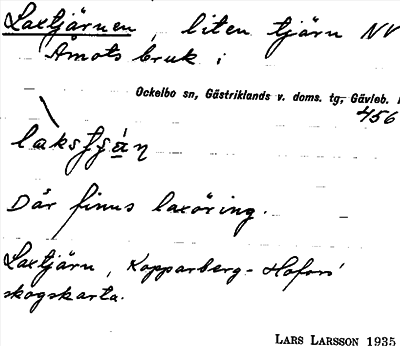 Laxtjärnen, liten tjärn NV
Åmots bruk i
Ockelbo sn, Gästriklands v. doms. tg, Gävleb.
456
Där finns laxöring.
Laxtjärn, Kopparberg-Hofors'
skogskarta.
LARS LARSSON 1935